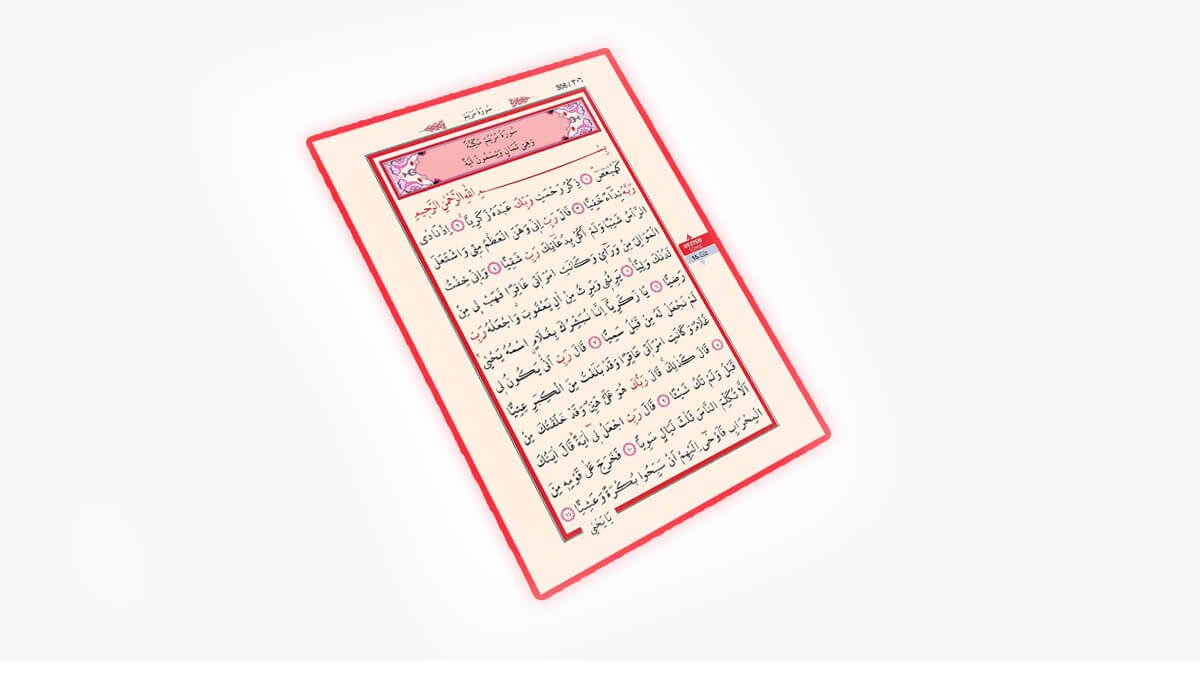 306 / ٣٠٦
سُورَةُ مَرْيَمَ
سُورَةُ مَرْيَمَ مَكِّيَّةٌ
وَهِيَ ثَمَانٍ وَتِسْعُونَ اٰيَةً
بِسْــــمِ اللّٰهِ الرَّحْمٰنِ الرَّحِيمِ
كٓهٰيٰعٓصٓ ﴿١﴾ ذِكْرُ رَحْمَتِ رَبِّكَ عَبْدَهُ زَكَرِيَّا ﴿٢﴾ اِذْ نَادٰى
رَبَّهُ نِدَٓاءً خَفِيًّا ﴿٣﴾ قَالَ رَبِّ اِنّٖي وَهَنَ الْعَظْمُ مِنّٖي وَاشْتَعَلَ
الرَّأْسُ شَيْبًا وَلَمْ اَكُنْ بِدُعَٓائِكَ رَبِّ شَقِيًّا ﴿٤﴾ وَاِنّٖي خِفْتُ
الْمَوَالِيَ مِنْ وَرَٓائٖي وَكَانَتِ امْرَاَتٖي عَاقِرًا فَهَبْ لٖي مِنْ
لَدُنْكَ وَلِيًّا ﴿٥﴾ يَرِثُنٖي وَيَرِثُ مِنْ اٰلِ يَعْقُوبَ وَاجْعَلْهُ رَبِّ
رَضِيًّا ﴿٦﴾ يَا زَكَرِيَّٓا اِنَّا نُبَشِّرُكَ بِغُلَامٍ اسْمُهُ يَحْيٰى
لَمْ نَجْعَلْ لَهُ مِنْ قَبْلُ سَمِيًّا ﴿٧﴾ قَالَ رَبِّ اَنّٰى يَكُونُ لٖي
غُلَامٌ وَكَانَتِ امْرَاَتٖي عَاقِرًا وَقَدْ بَلَغْتُ مِنَ الْكِبَرِ عِتِيًّا
﴿٨﴾ قَالَ كَذٰلِكَ قَالَ رَبُّكَ هُوَ عَلَيَّ هَيِّنٌ وَقَدْ خَلَقْتُكَ مِنْ
قَبْلُ وَلَمْ تَكُ شَيْـًٔا ﴿٩﴾ قَالَ رَبِّ اجْعَلْ لٖٓي اٰيَةً قَالَ اٰيَتُكَ
اَلَّا تُكَلِّمَ النَّاسَ ثَلٰثَ لَيَالٍ سَوِيًّا ﴿١٠﴾ فَخَرَجَ عَلٰى قَوْمِهٖ مِنَ
الْمِحْرَابِ فَاَوْحٰٓى اِلَيْهِمْ اَنْ سَبِّحُوا بُكْرَةً وَعَشِيًّا ﴿١١﴾
يَا يَحْيٰى
16. Cüz